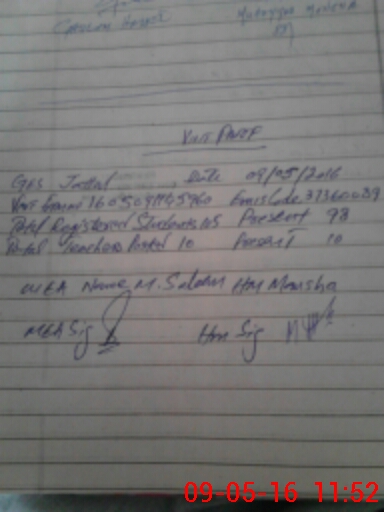 Visit Proof
GPS Jattal Date 09/05/2016
Visit 1605091145960 Emis Code 37360039
Total Registered Students 115 Present 98
Total Teachers Posted 10 Present 10
MEA Name M. Salam Hm Mansha
MEA Sig Hm Sig
09-05-16 11:52